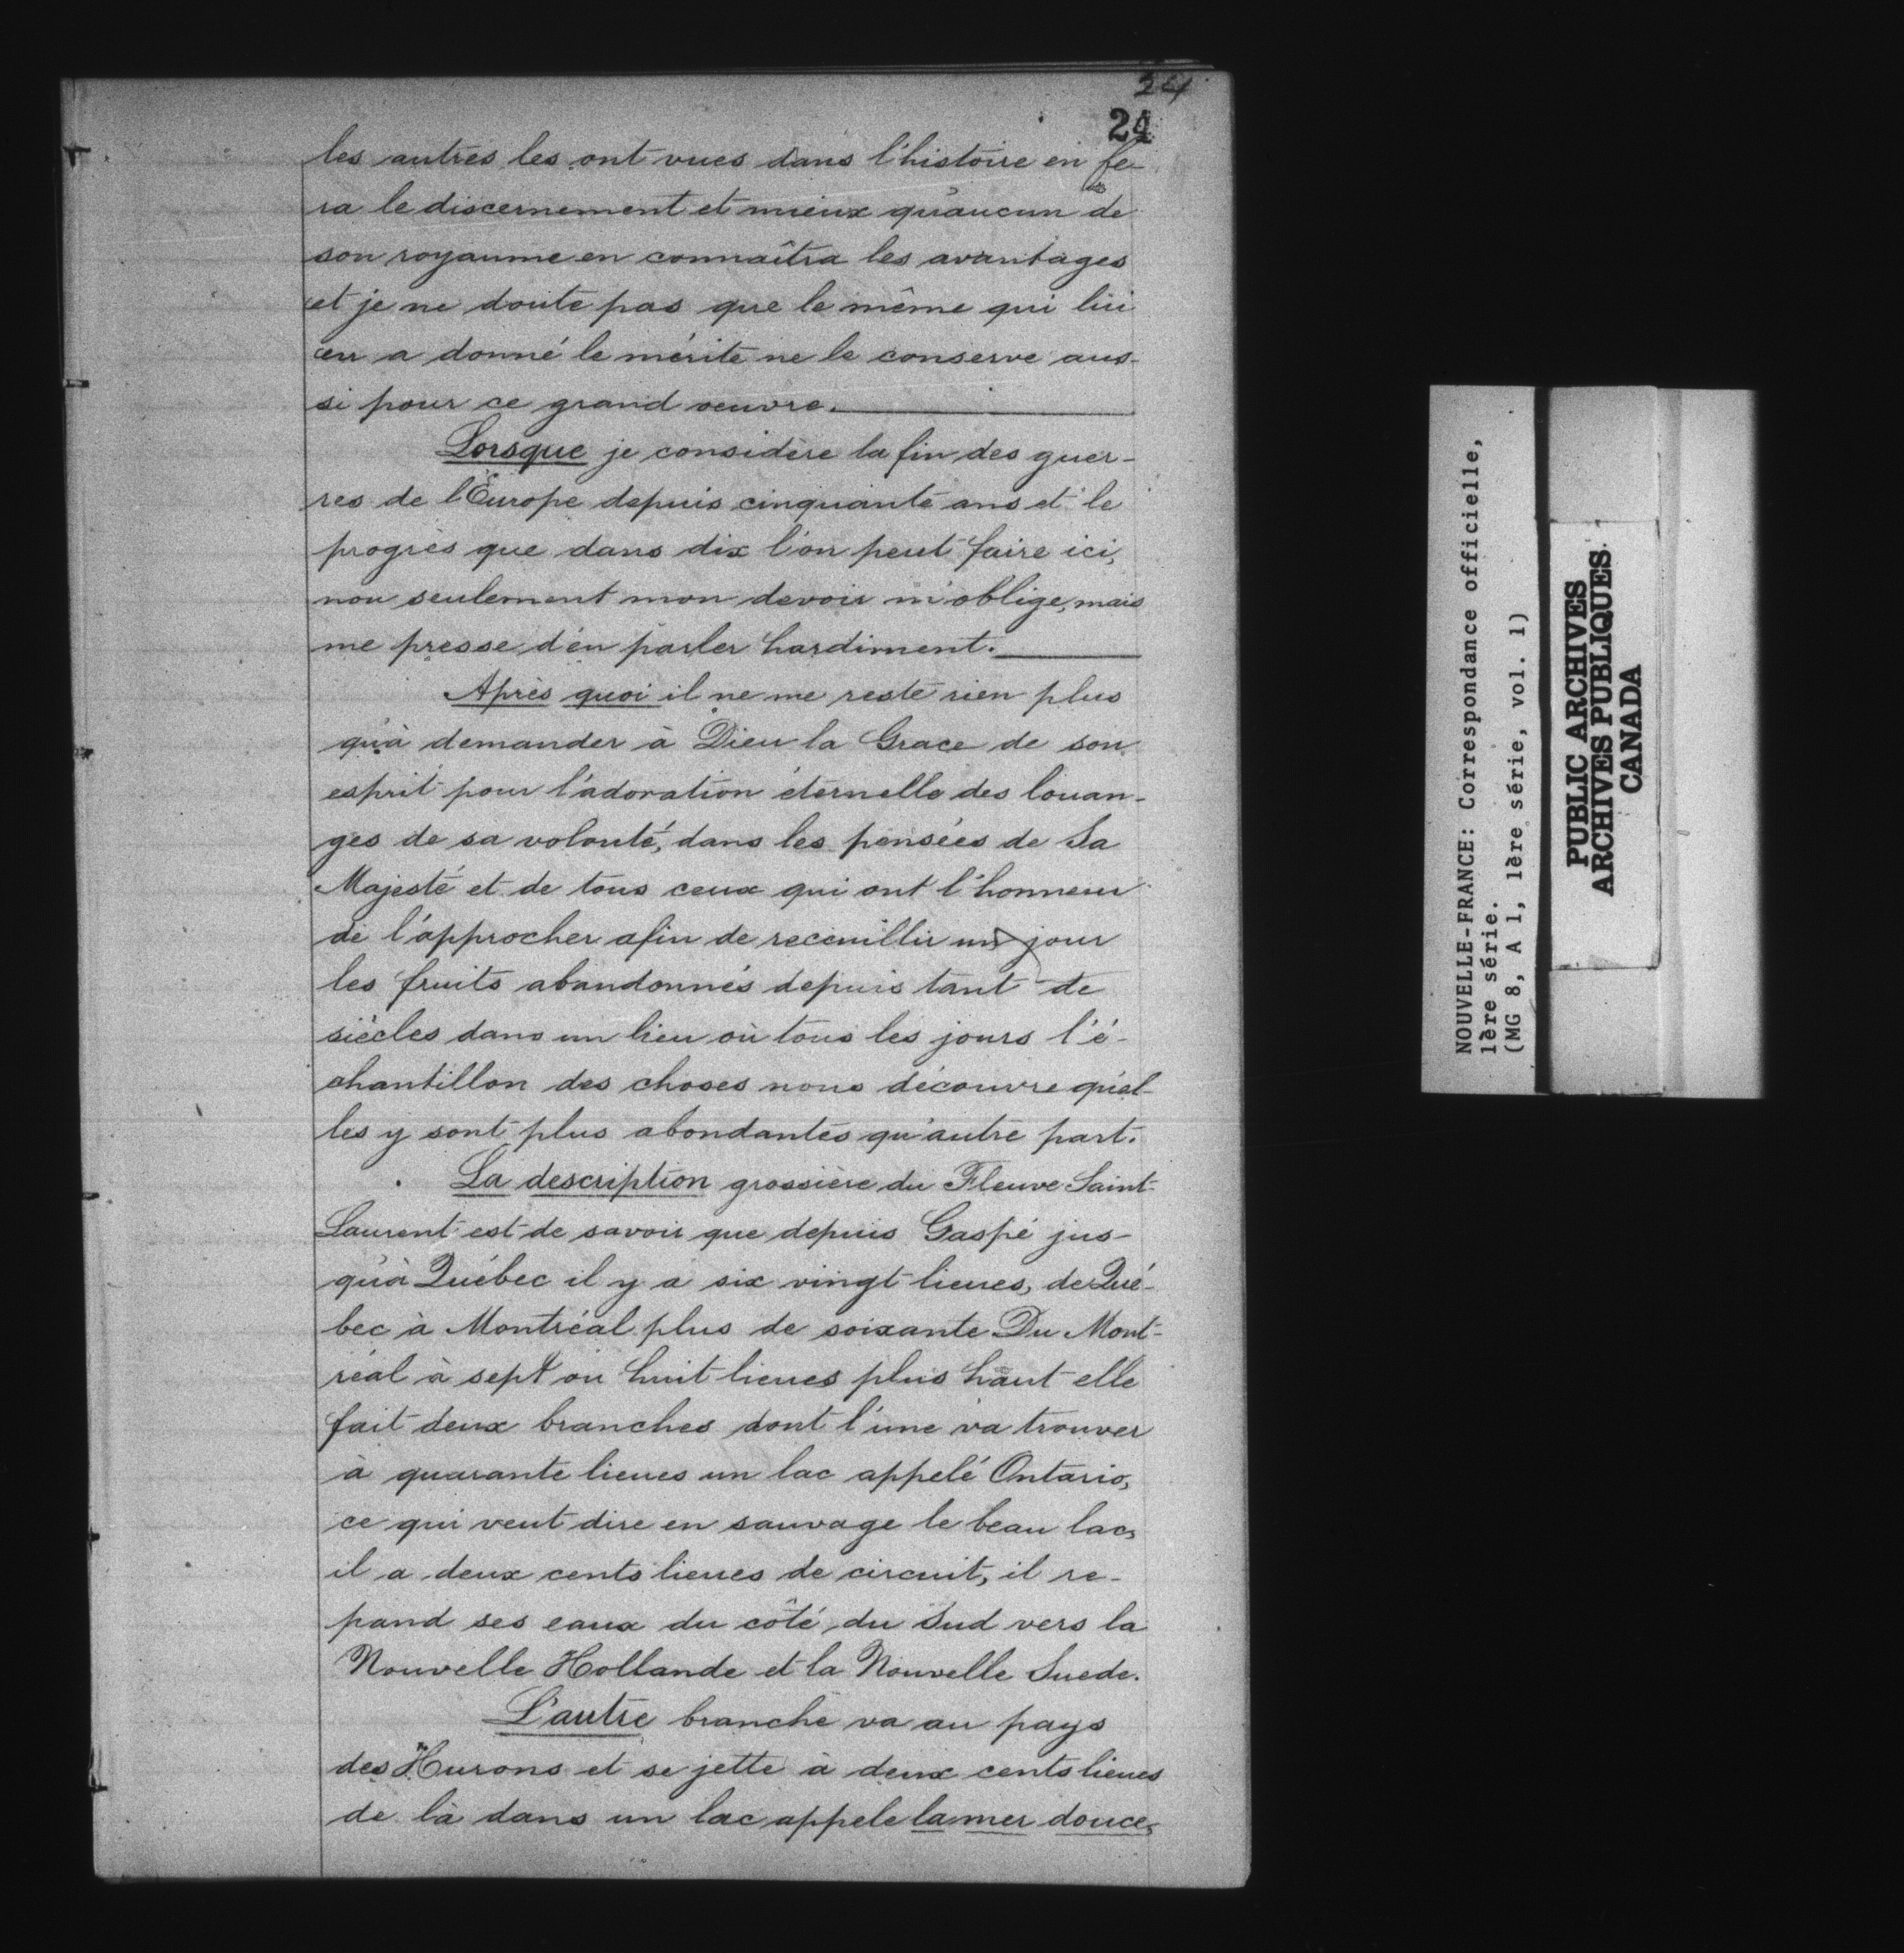 24
24
les autres les ont vues dans l'histoire en fe-
ra le discernement et mieux qu'aucun de
son royaume en connaîtra les avantages
et je ne doute pas que le même qui lui
en a donné le mérite ne le conserve aus-
si pour ce grand oeuvre.
Lorsque je considère la fin des guer-
res de l'Europe depuis cinquante ans et le
progrès que dans dix l'on peut faire ici,
non seulement mon devoir m'oblige, mais
me presse d'en parler hardiment.
Après quoi il ne me reste rien plus
qu'à demander à Dieu la Grace de son
esprit pour l'adoration éternelle des louan-
ges de sa volonté, dans les pensées de Sa
Majesté et de tous ceux qui ont l'honneur
de l'approcher afin de recueillir un jour
les fruits abandonnés depuis tant de
siècles dans un lieu où tous les jours l'é-
chantillon des choses nous découvre qu'el-
les y sont plus abondantes qu'autre part.
La description grossière du Fleuve Saint-
Laurent est de savoir que depuis Gaspé jus-
qu'à Québec il y a six vingt lieues, de Qué-
bec à Montréal plus de soixante. Du Mont-
réal à sept ou huit lieues plus haut elle
fait deux branches dont l'une va trouver
à quarante lieues un lac appelé Ontario,
ce qui veut dire en sauvage le beau lac,
il a deux cents lieues de circuit, il re-
pand ses eaux du côté du Sud vers la
Nouvelle Hollande et la Nouvelle Suede.
L'autre branche va au pays
des Hurons et se jette à deux cents lieues
de là dans un lac appele la mer douce,
NOUVELLE-FRANCE: Correspondance officielle,
1ère série.
(MG 8, A 1, 1ère série, vol. 1)
PUBLIC ARCHIVES
ARCHIVES PUBLIQUES
CANADA